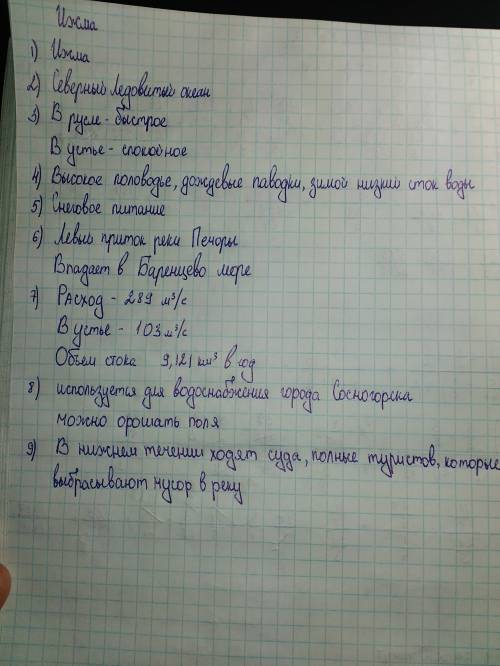 Ижма
1) Ижма
2) Северный Ледовитый океан
3) В русле - быстрое
В устье - спокойное
4) Высокое половодье, дождевые паводки, зимой низкий сток воды
5) Снеговое питание
6) Левый приток реки Печоры
Впадает в Баренцево море
7) Расход - 289 м³/с
В устье - 103 м³/с
Объем стока 9,121 км³ в год
8) используется для водоснабжения города Сосногорска
можно орошать поля
9) В нижнем течении ходят суда, полные туристов, которые
выбрасывают мусор в реку